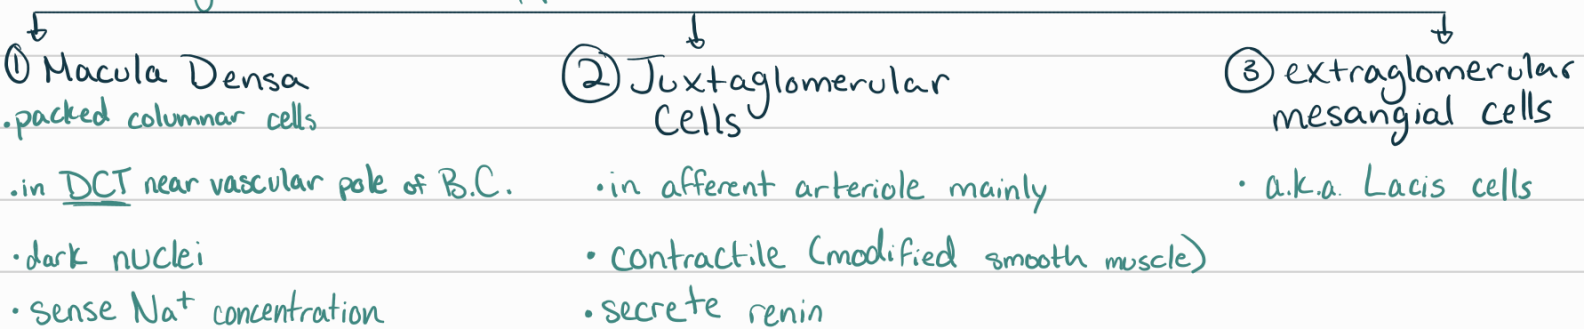 ① Macula Densa
• packed columnar cells
• in DCT near vascular pole of B.C.
• dark nuclei
• sense Na⁺ concentration
② Juxtaglomerular
Cells
• in afferent arteriole mainly
• contractile (modified smooth muscle)
• secrete renin
③ extraglomerular
mesangial cells
• a.k.a. Lacis cells